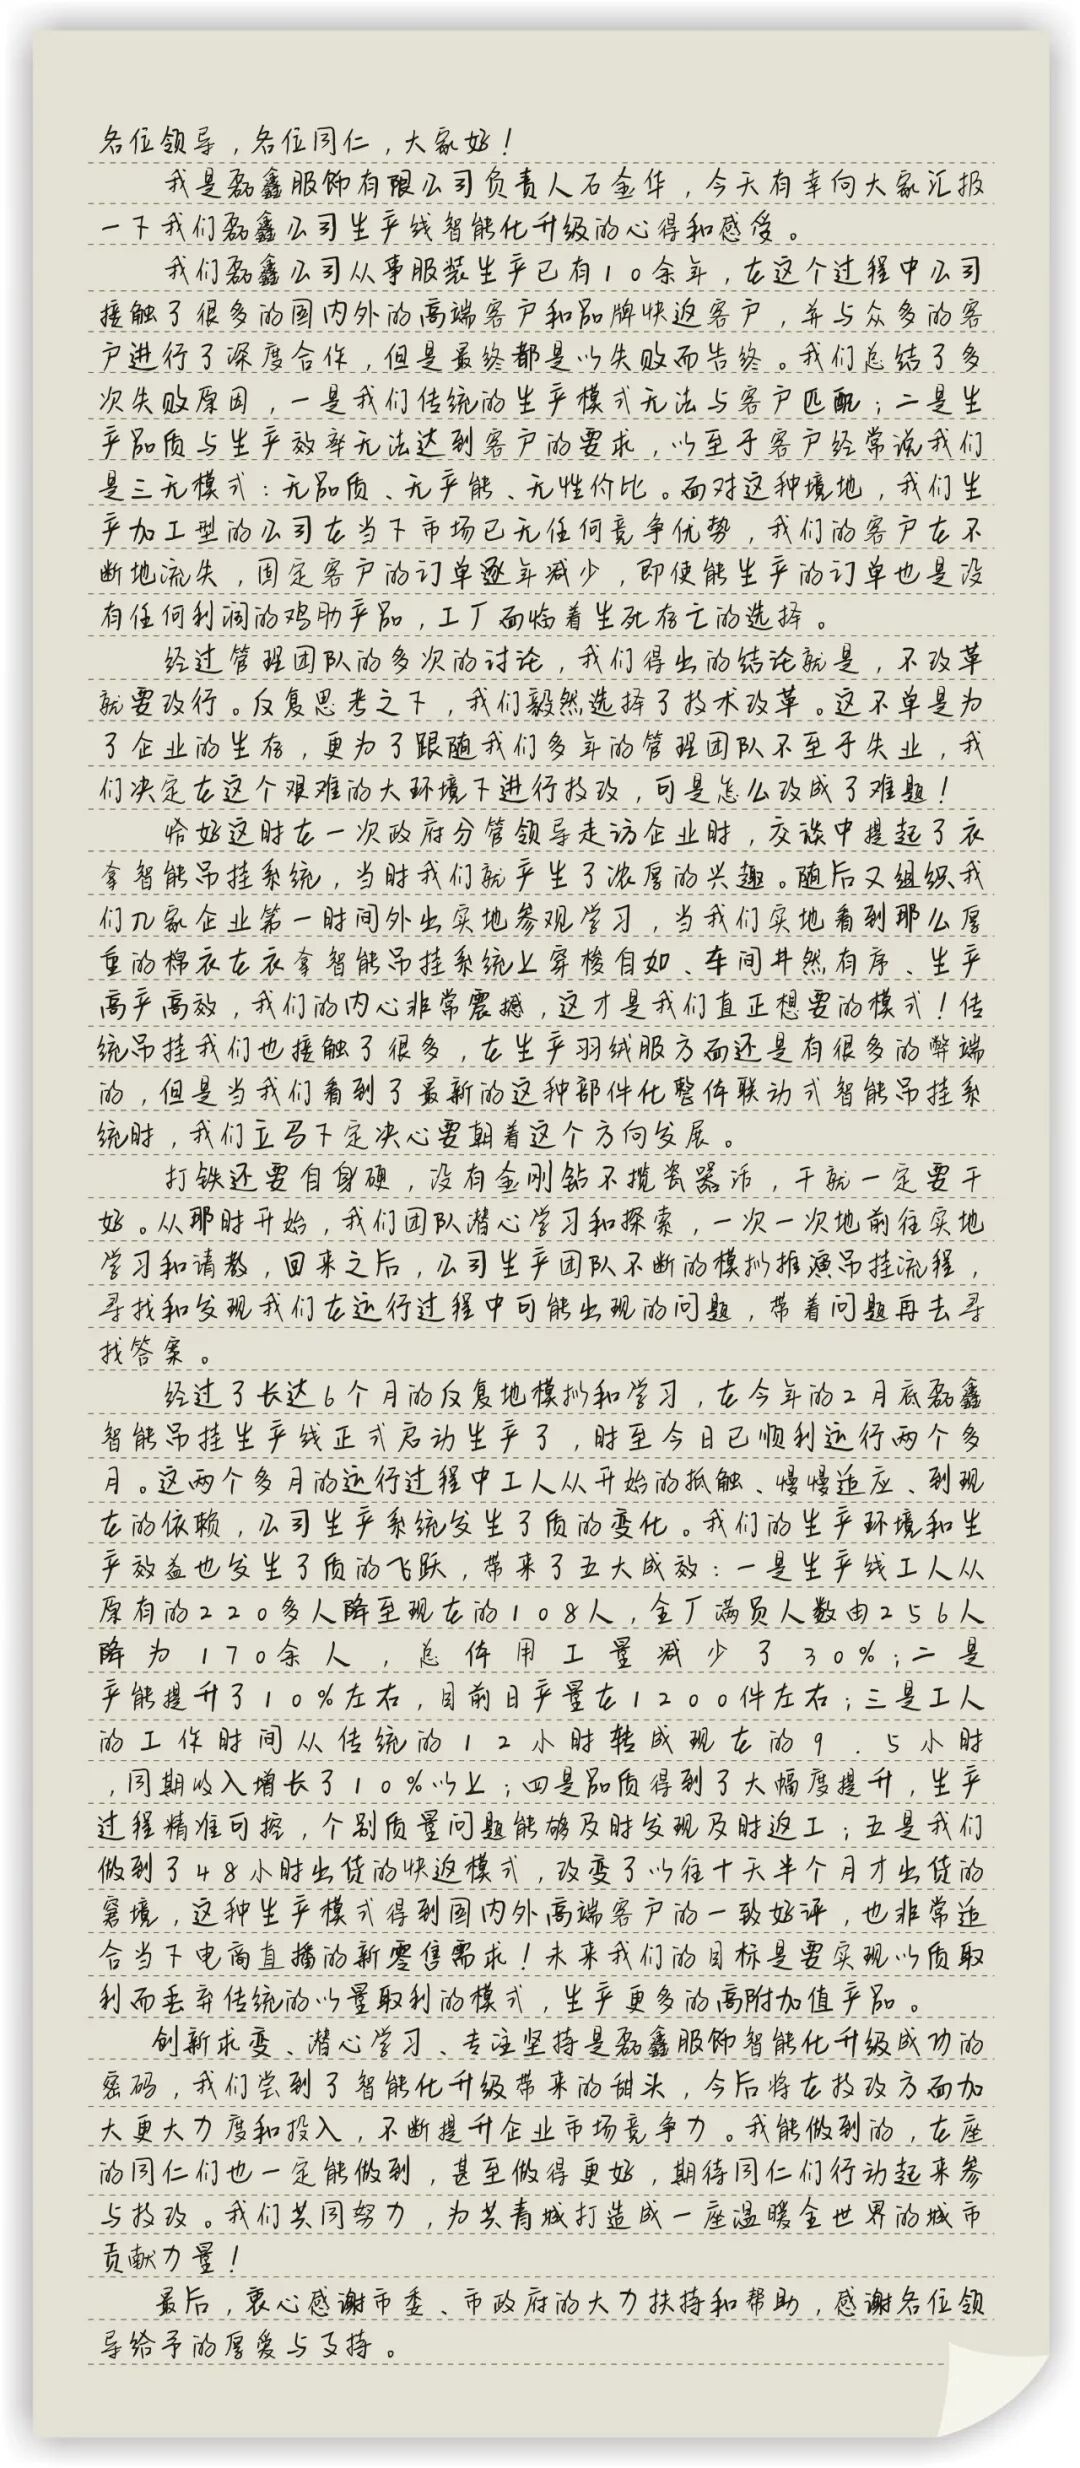 各位领导，各位同仁，大家好！
我是磊鑫服饰有限公司负责人石金华，今天有幸向大家汇报
一下我们磊鑫公司生产线智能化升级的心得和感受。
我们磊鑫公司从事服装生产已有10余年，在这个过程中公司
接触了很多的国内外的高端客户和品牌快返客户，并与众多的客
户进行了深度合作，但是最终都是以失败而告终。我们总结了多
次失败原因，一是我们传统的生产模式无法与客户匹配；二是生
产品质与生产效率无法达到客户的要求，以至于客户经常说我们
是三无模式：无品质、无产能、无性价比。面对这种境地，我们生
产加工型的公司在当下市场已无任何竞争优势，我们的客户在不
断地流失，固定客户的订单逐年减少，即使能生产的订单也是没
有任何利润的鸡肋产品，工厂面临着生死存亡的选择。
经过管理团队的多次的讨论，我们得出的结论就是，不改革
就要改行。反复思考之下，我们毅然选择了技术改革。这不单是为
了企业的生存，更为了跟随我们多年的管理团队不至于失业，我
们决定在这个艰难的大环境下进行技改，可是怎么改成了难题！
恰好这时在一次政府分管领导走访企业时，交谈中提起了衣
拿智能吊挂系统，当时我们就产生了浓厚的兴趣。随后又组织我
们几家企业第一时间外出实地参观学习，当我们实地看到那么厚
重的棉衣在衣拿智能吊挂系统上穿梭自如、车间井然有序、生产
高产高效，我们的内心非常震撼，这才是我们真正想要的模式！传
统吊挂我们也接触了很多，在生产羽绒服方面还是有很多的弊端
的，但是当我们看到了最新的这种部件化整体联动式智能吊挂系
统时，我们立马下定决心要朝着这个方向发展。
打铁还要自身硬，没有金刚钻不揽瓷器活，干就一定要干
好。从那时开始，我们团队潜心学习和探索，一次一次地前往实地
学习和请教，回来之后，公司生产团队不断的模拟推演吊挂流程，
寻找和发现我们在运行过程中可能出现的问题，带着问题再去寻
找答案。
经过了长达6个月的反复地模拟和学习，在今年的2月底磊鑫
智能吊挂生产线正式启动生产了，时至今日已顺利运行两个多
月。这两个多月的运行过程中工人从开始的抵触、慢慢适应、到现
在的依赖，公司生产系统发生了质的变化。我们的生产环境和生
产效益也发生了质的飞跃，带来了五大成效：一是生产线工人从
原有的220多人降至现在的108人，全厂满员人数由256人
降为170余人，总体用工量减少了30%；二是
产能提升了10%左右，目前日产量在1200件左右；三是工人
的工作时间从传统的12小时转成现在的9.5小时
，同期收入增长了10%以上；四是品质得到了大幅度提升，生产
过程精准可控，个别质量问题能够及时发现及时返工；五是我们
做到了48小时出货的快返模式，改变了以往十天半个月才出货的
窘境，这种生产模式得到国内外高端客户的一致好评，也非常适
合当下电商直播的新零售需求！未来我们的目标是要实现以质取
利而丢弃传统的以量取利的模式，生产更多的高附加值产品。
创新求变、潜心学习、专注坚持是磊鑫服饰智能化升级成功的
密码，我们尝到了智能化升级带来的甜头，今后将在技改方面加
大更大力度和投入，不断提升企业市场竞争力。我能做到的，在座
的同仁们也一定能做到，甚至做得更好，期待同仁们行动起来参
与技改。我们共同努力，为共青城打造成一座温暖全世界的城市
贡献力量！
最后，衷心感谢市委、市政府的大力扶持和帮助，感谢各位领
导给予的厚爱与支持。